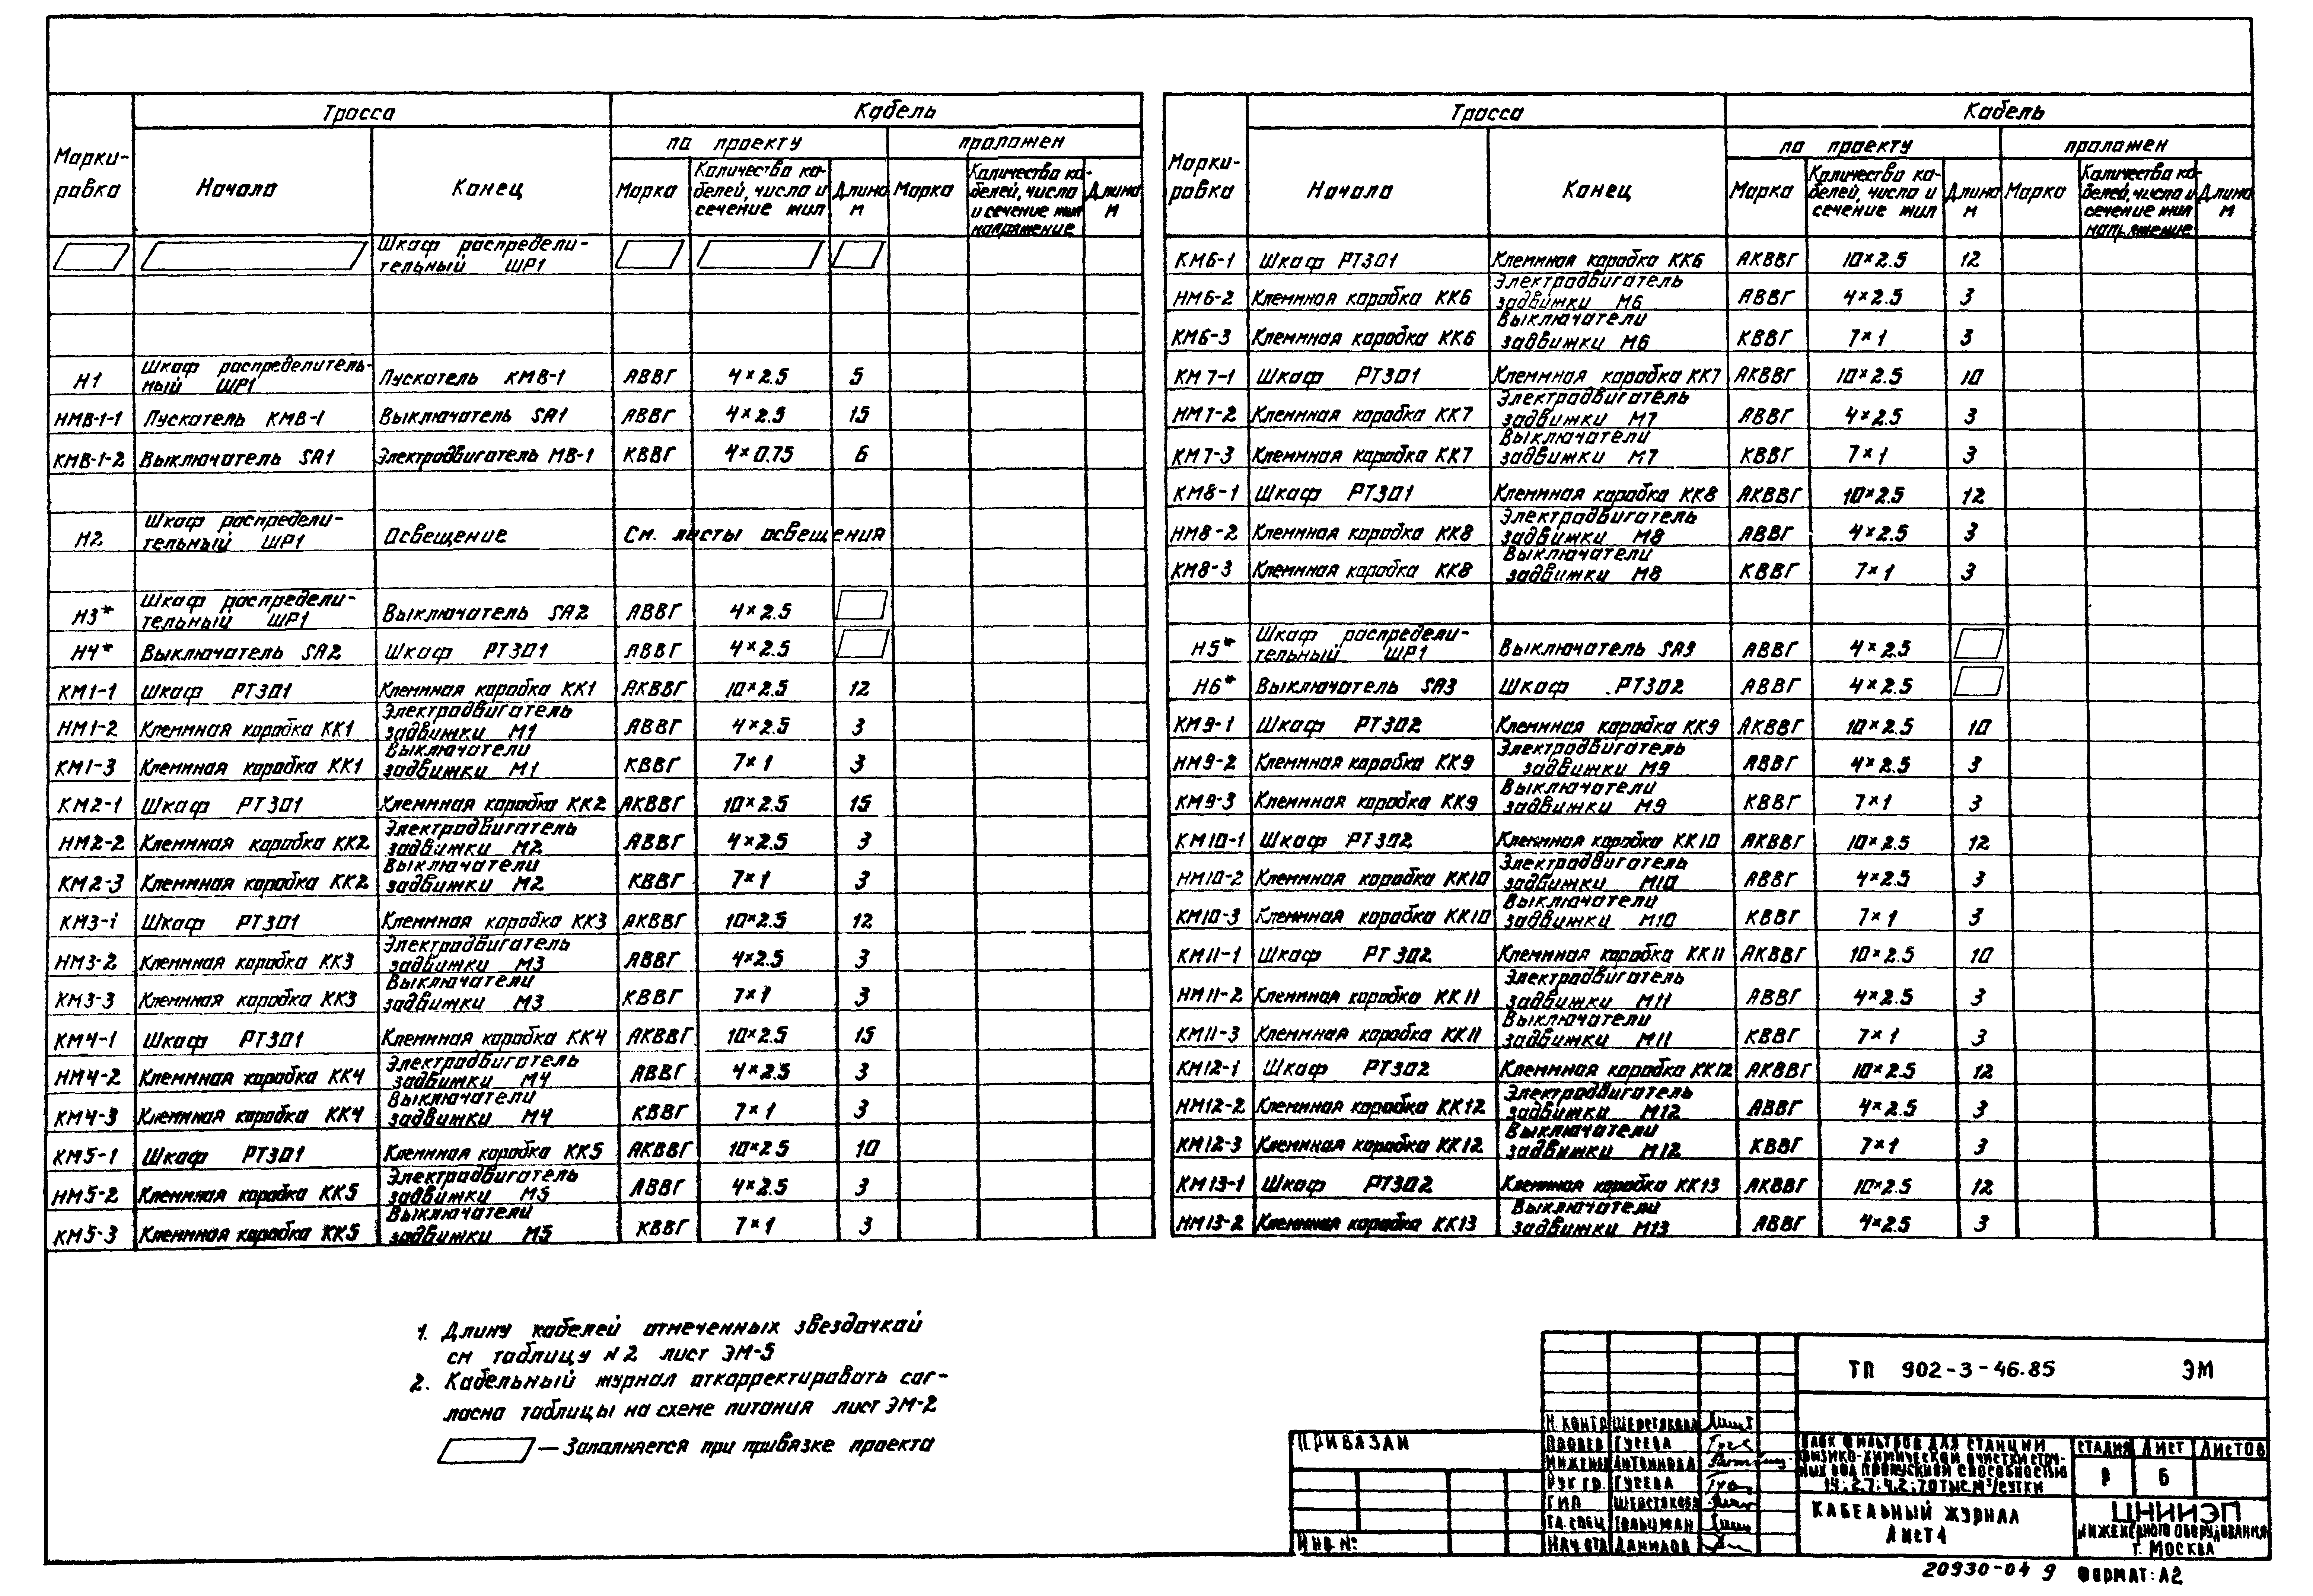 Марки-
ровка
Трасса
Кабель
Начало
Конец
по проекту
проложен
Марка
Количество ка-
белей, число и
сечение жил
Длина
м
Марка
Количество ка-
белей, число
и сечение жил
напряжение
Длина
м
Шкаф распредели-
тельный ШР1
Н1 Шкаф распределитель-
ный ШР1 Пускатель КМВ-1 АВВГ 4×2.5 5
НМВ-1-1 Пускатель КМВ-1 Выключатель SA1 АВВГ 4×2.5 15
КМВ-1-2 Выключатель SA1 Электродвигатель МВ-1 КВВГ 4×0.75 6
Н2 Шкаф распредели-
тельный ШР1 Освещение См. листы освещения
Н3* Шкаф распредели-
тельный ШР1 Выключатель SA2 АВВГ 4×2.5
Н4* Выключатель SA2 Шкаф РТ301 АВВГ 4×2.5
КМ1-1 Шкаф РТ301 Клеммная коробка КК1 АКВВГ 10×2.5 12
НМ1-2 Клеммная коробка КК1 Электродвигатель
задвижки М1 АВВГ 4×2.5 3
КМ1-3 Клеммная коробка КК1 Выключатели
задвижки М1 КВВГ 7×1 3
КМ2-1 Шкаф РТ301 Клеммная коробка КК2 АКВВГ 10×2.5 15
НМ2-2 Клеммная коробка КК2 Электродвигатель
задвижки М2 АВВГ 4×2.5 3
КМ2-3 Клеммная коробка КК2 Выключатели
задвижки М2 КВВГ 7×1 3
КМ3-1 Шкаф РТ301 Клеммная коробка КК3 АКВВГ 10×2.5 12
НМ3-2 Клеммная коробка КК3 Электродвигатель
задвижки М3 АВВГ 4×2.5 3
КМ3-3 Клеммная коробка КК3 Выключатели
задвижки М3 КВВГ 7×1 3
КМ4-1 Шкаф РТ301 Клеммная коробка КК4 АКВВГ 10×2.5 15
НМ4-2 Клеммная коробка КК4 Электродвигатель
задвижки М4 АВВГ 4×2.5 3
КМ4-3 Клеммная коробка КК4 Выключатели
задвижки М4 КВВГ 7×1 3
КМ5-1 Шкаф РТ301 Клеммная коробка КК5 АКВВГ 10×2.5 10
НМ5-2 Клеммная коробка КК5 Электродвигатель
задвижки М5 АВВГ 4×2.5 3
КМ5-3 Клеммная коробка КК5 Выключатели
задвижки М5 КВВГ 7×1 3
Марки-
ровка
Трасса
Кабель
Начало
Конец
по проекту
проложен
Марка
Количество ка-
белей, число и
сечение жил
Длина
м
Марка
Количество ка-
белей, число и
сечение жил
напряжение
Длина
м
КМ6-1 Шкаф РТ301 Клеммная коробка КК6 АКВВГ 10×2.5 12
НМ6-2 Клеммная коробка КК6 Электродвигатель
задвижки М6 АВВГ 4×2.5 3
КМ6-3 Клеммная коробка КК6 Выключатели
задвижки М6 КВВГ 7×1 3
КМ7-1 Шкаф РТ301 Клеммная коробка КК7 АКВВГ 10×2.5 10
НМ7-2 Клеммная коробка КК7 Электродвигатель
задвижки М7 АВВГ 4×2.5 3
КМ7-3 Клеммная коробка КК7 Выключатели
задвижки М7 КВВГ 7×1 3
КМ8-1 Шкаф РТ301 Клеммная коробка КК8 АКВВГ 10×2.5 12
НМ8-2 Клеммная коробка КК8 Электродвигатель
задвижки М8 АВВГ 4×2.5 3
КМ8-3 Клеммная коробка КК8 Выключатели
задвижки М8 КВВГ 7×1 3
Н5* Шкаф распредели-
тельный ШР1 Выключатель SA3 АВВГ 4×2.5
Н6* Выключатель SA3 Шкаф РТ302 АВВГ 4×2.5
КМ9-1 Шкаф РТ302 Клеммная коробка КК9 АКВВГ 10×2.5 10
НМ9-2 Клеммная коробка КК9 Электродвигатель
задвижки М9 АВВГ 4×2.5 3
КМ9-3 Клеммная коробка КК9 Выключатели
задвижки М9 КВВГ 7×1 3
КМ10-1 Шкаф РТ302 Клеммная коробка КК10 АКВВГ 10×2.5 12
НМ10-2 Клеммная коробка КК10 Электродвигатель
задвижки М10 АВВГ 4×2.5 3
КМ10-3 Клеммная коробка КК10 Выключатели
задвижки М10 КВВГ 7×1 3
КМ11-1 Шкаф РТ302 Клеммная коробка КК11 АКВВГ 10×2.5 10
НМ11-2 Клеммная коробка КК11 Электродвигатель
задвижки М11 АВВГ 4×2.5 3
КМ11-3 Клеммная коробка КК11 Выключатели
задвижки М11 КВВГ 7×1 3
КМ12-1 Шкаф РТ302 Клеммная коробка КК12 АКВВГ 10×2.5 12
НМ12-2 Клеммная коробка КК12 Электродвигатель
задвижки М12 АВВГ 4×2.5 3
КМ12-3 Клеммная коробка КК12 Выключатели
задвижки М12 КВВГ 7×1 3
КМ13-1 Шкаф РТ302 Клеммная коробка КК13 АКВВГ 10×2.5 12
НМ13-2 Клеммная коробка КК13 Выключатели
задвижки М13 АВВГ 4×2.5 3
1. Длину кабелей отмеченных звездочкой
см таблицу N2 лист ЭМ-5
2. Кабельный журнал откорректировать сог-
ласно таблицы на схеме питания лист ЭМ-2
— Заполняется при привязке проекта
ПРИВЯЗАН
ИНВ. N:
Н. КОНТР ШЕРСТЯКОВА
ПРОВЕР ГУСЕВА
ИНЖЕНЕР АНТОНОВА
РУК ГР. ГУСЕВА
ГИП ШЕРСТЯКОВА
ГЛ. СПЕЦ ГОЛЬЦМАН
НАЧ ОТД ДАНИЛОВ
ТП 902-3-46.85 ЭМ
БЛОК ФИЛЬТРОВ ДЛЯ СТАНЦИИ
ФИЗИКО-ХИМИЧЕСКОЙ ОЧИСТКИ СТОЧ-
НЫХ ВОД ПРОПУСКНОЙ СПОСОБНОСТЬЮ
1,4; 2,7; 4,2; 7,0 ТЫС. М³/СУТКИ
СТАДИЯ ЛИСТ ЛИСТОВ
Р 6
КАБЕЛЬНЫЙ ЖУРНАЛ
ЛИСТ 1
ЦНИИЭП
ИНЖЕНЕРНОГО ОБОРУДОВАНИЯ
Г. МОСКВА
20930-04 9 ФОРМАТ: А2